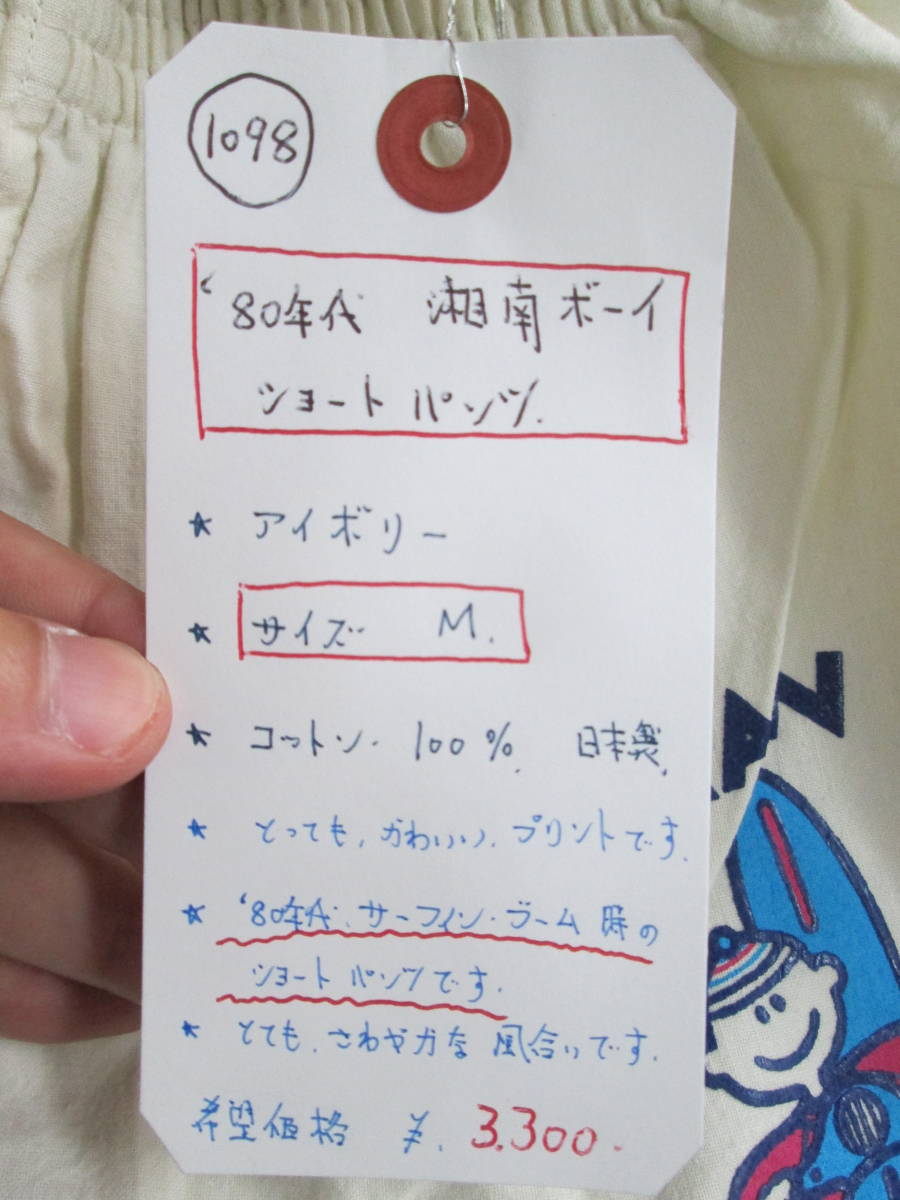 1098
'80年代 湘南ボーイ
ショートパンツ.
★ アイボリー
★ サイズ M.
★ コットン. 100%. 日本製.
★ とっても, かわいい, プリントです.
★ '80年代, サーフィン・ブーム時の
ショートパンツです.
★ とても, さわやかな風合いです.
希望価格 ¥. 3.300-